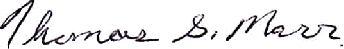 Thomas S. Marr